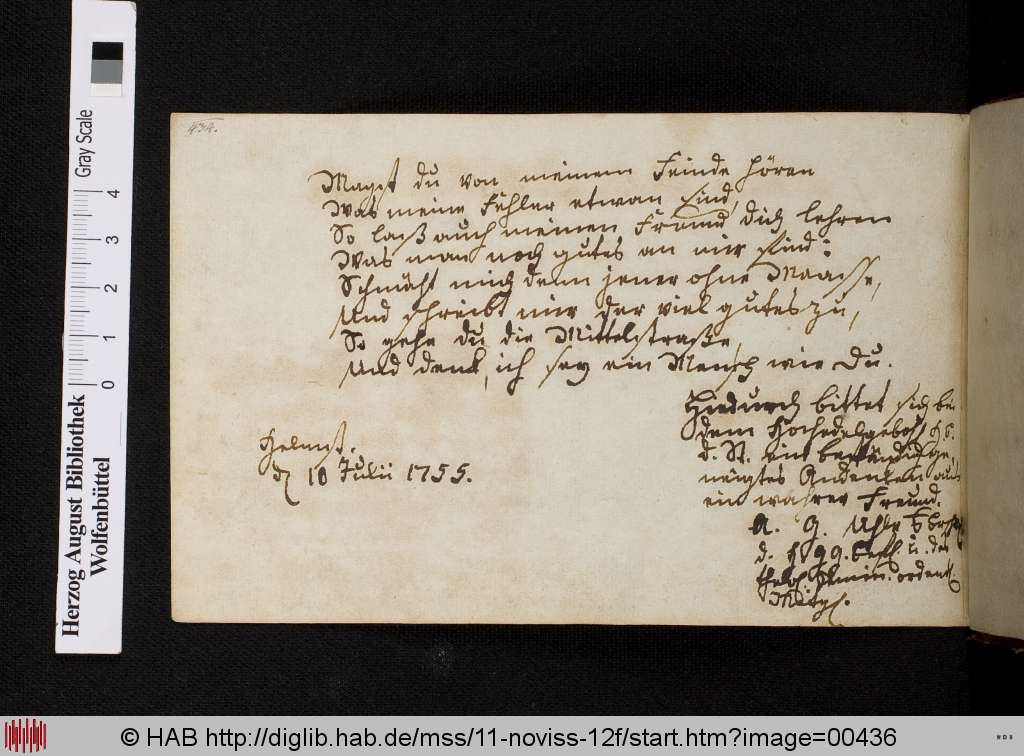 434.
Magst du von meinem Feinde hören
Was meine Fehler etwan sind,
So laß auch meinen Freund dich lehren
Was man noch gutes an mir find:
Schmäht mich denn jener ohne Maasse,
Und schreibt mir der viel gutes zu,
So gehe du die Mittelstraße,
Und denk, ich sey ein Mensch wie Du.
Hiedurch bittet sich bei
dem Hochedelgebohr
d. St. ein beständig ge-
neigtes Andenken aus
ein wahrer Freund.
A. G.
d. u. der
ordentl.
Mitgl.
Helmst.
d 10 Julii 1755.
Herzog August Bibliothek
Wolfenbüttel
Gray Scale
0 1 2 3 4
© HAB http://diglib.hab.de/mss/11-noviss-12f/start.htm?image=00436